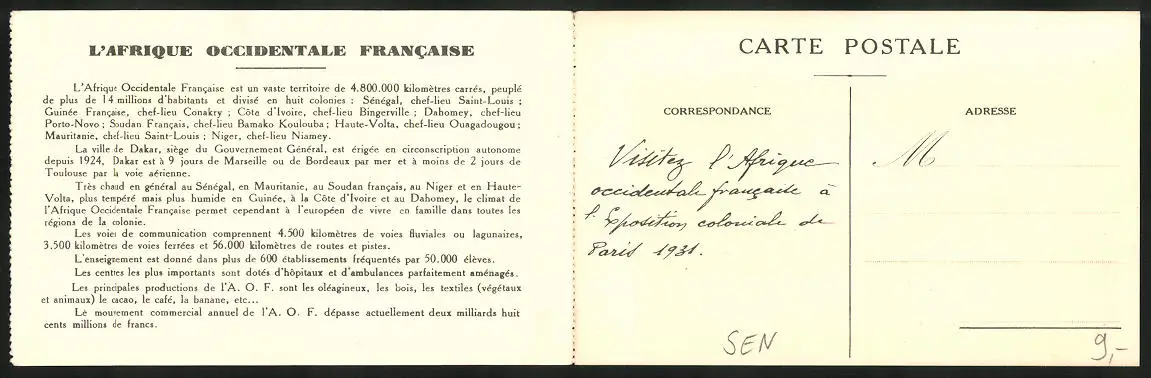 L'AFRIQUE OCCIDENTALE FRANÇAISE
L'Afrique Occidentale Française est un vaste territoire de 4.800.000 kilomètres carrés, peuplé
de plus de 14 millions d'habitants et divisé en huit colonies : Sénégal, chef-lieu Saint-Louis ;
Guinée Française, chef-lieu Conakry ; Côte d'Ivoire, chef-lieu Bingerville ; Dahomey, chef-lieu
Porto-Novo ; Soudan Français, chef-lieu Bamako Koulouba ; Haute-Volta, chef-lieu Ouagadougou ;
Mauritanie, chef-lieu Saint-Louis ; Niger, chef-lieu Niamey.
La ville de Dakar, siège du Gouvernement Général, est érigée en circonscription autonome
depuis 1924. Dakar est à 9 jours de Marseille ou de Bordeaux par mer et à moins de 2 jours de
Toulouse par la voie aérienne.
Très chaud en général au Sénégal, en Mauritanie, au Soudan français, au Niger et en Haute-
Volta, plus tempéré mais plus humide en Guinée, à la Côte d'Ivoire et au Dahomey, le climat de
l'Afrique Occidentale Française permet cependant à l'européen de vivre en famille dans toutes les
régions de la colonie.
Les voies de communication comprennent 4.500 kilomètres de voies fluviales ou lagunaires,
3.500 kilomètres de voies ferrées et 56.000 kilomètres de routes et pistes.
L'enseignement est donné dans plus de 600 établissements fréquentés par 50.000 élèves.
Les centres les plus importants sont dotés d'hôpitaux et d'ambulances parfaitement aménagés.
Les principales productions de l'A. O. F. sont les oléagineux, les bois, les textiles (végétaux
et animaux) le cacao, le café, la banane, etc...
Le mouvement commercial annuel de l'A. O. F. dépasse actuellement deux milliards huit
cents millions de francs.
CARTE POSTALE
CORRESPONDANCE
Visitez l'Afrique
occidentale française à
l'Exposition coloniale de
Paris 1931.
SEN
ADRESSE
M
9,-